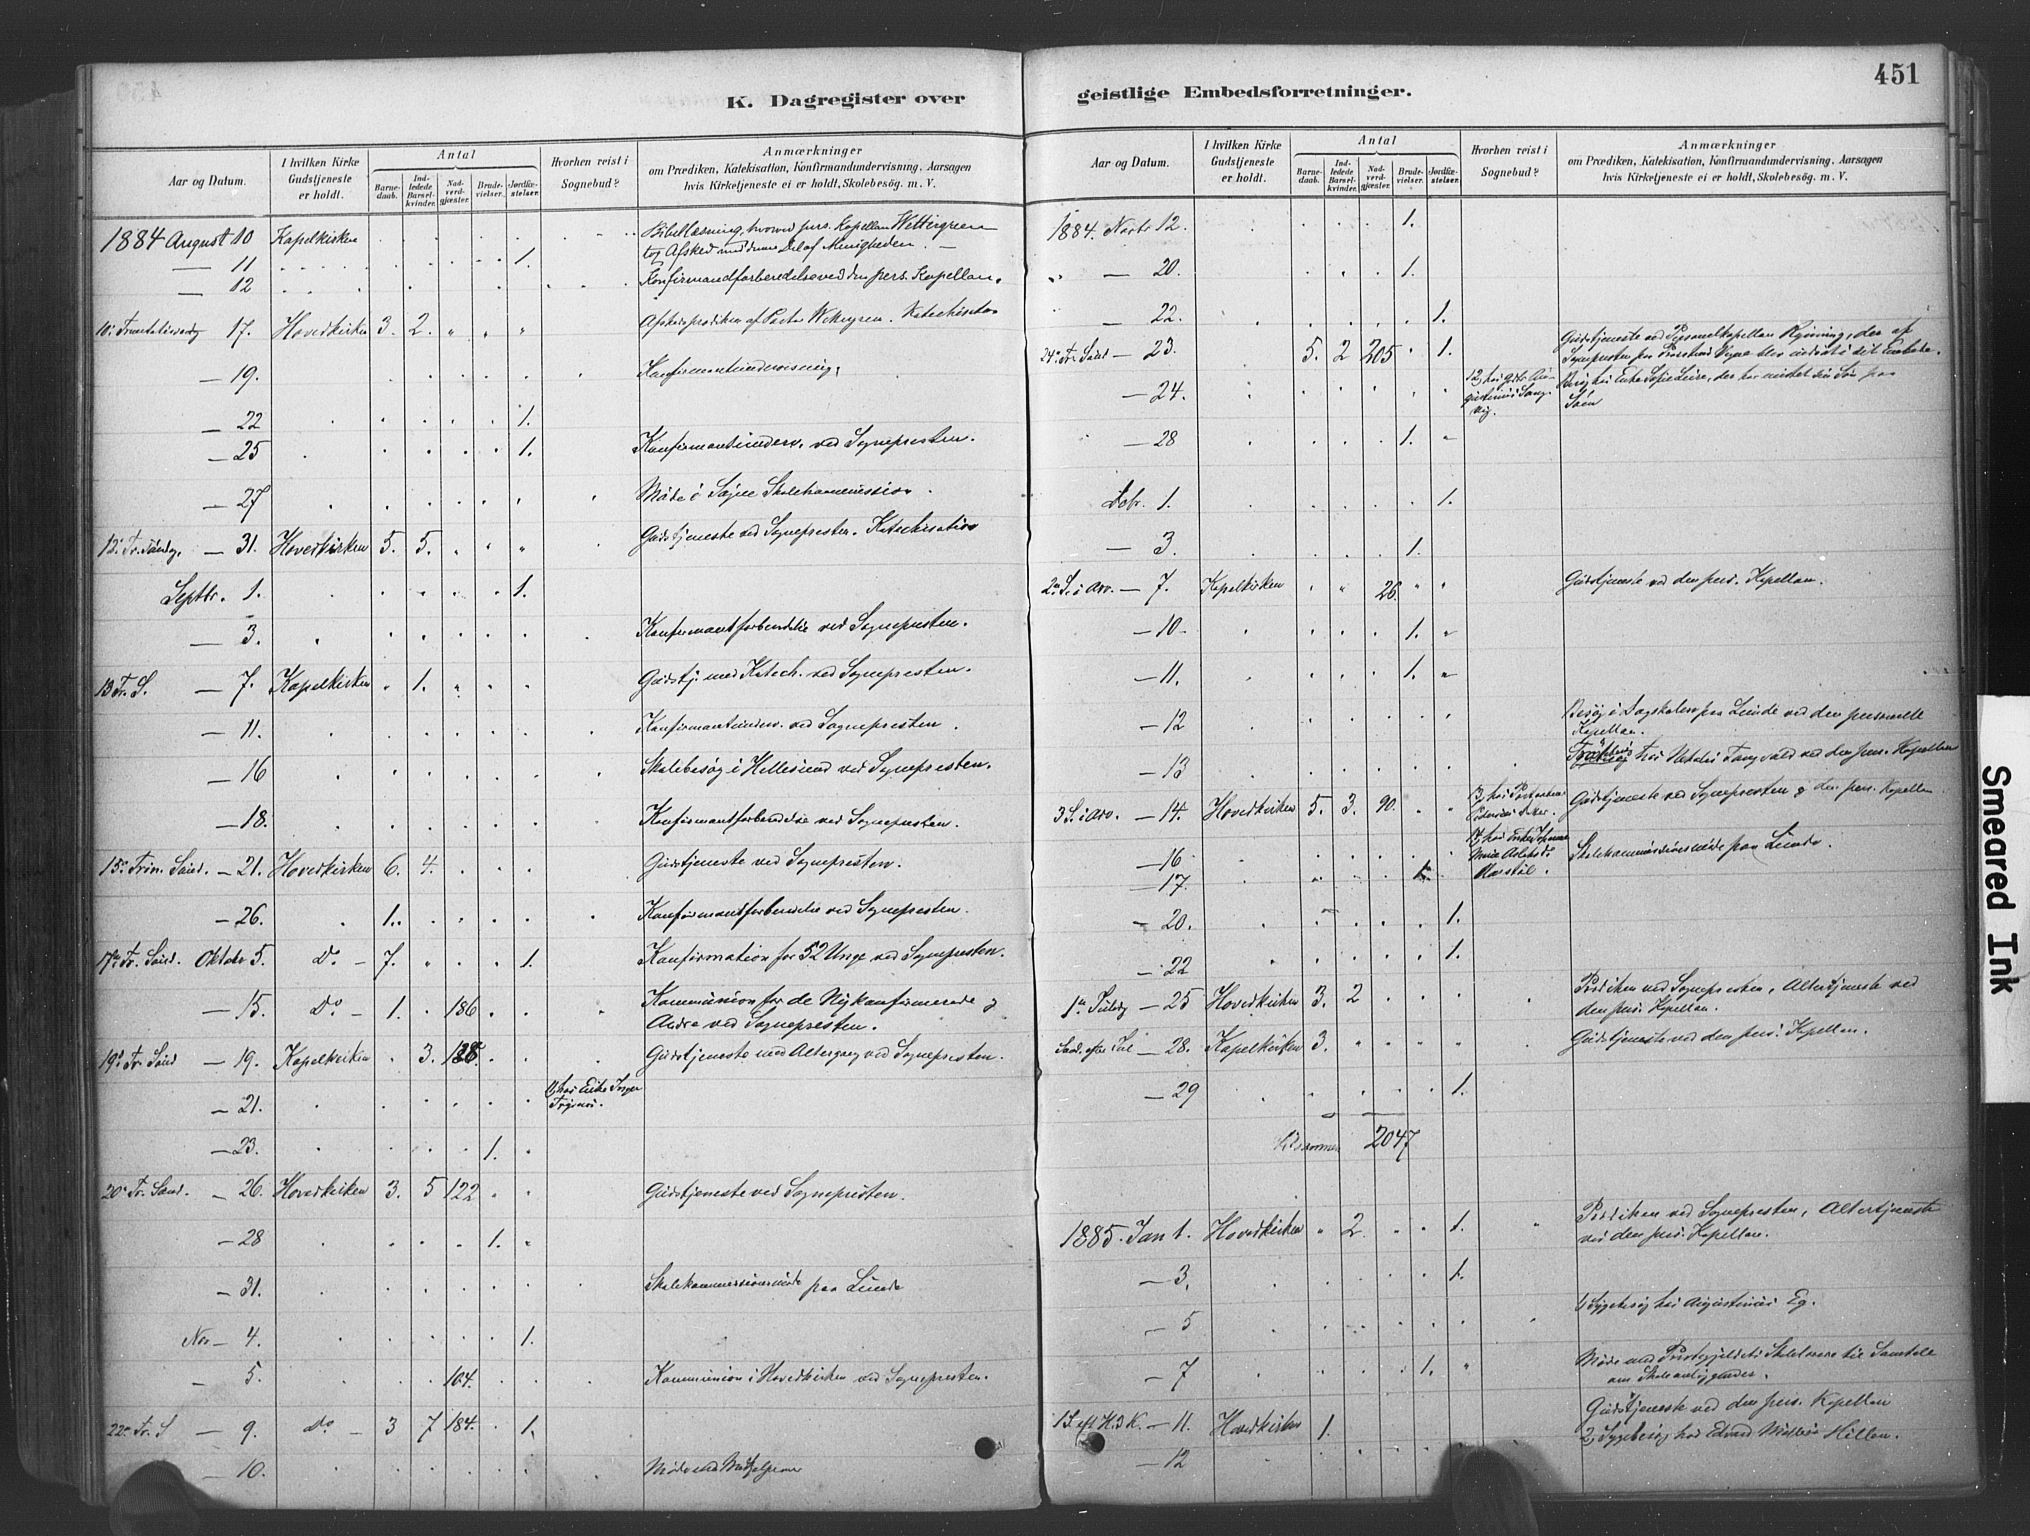 451
K. Dagregister over
Aar og Datum.
I hvilken Kirke
Gudstjeneste
er holdt.
Antal
Barne-
daab.
Ind-
ledede
Barsel-
kvinder.
Nad-
verd-
gjæster.
Brude-
vielser.
Jordfæ-
stelser.
Hvorhen reist i
Sognebud?
Anmærkninger
om Prædiken, Katekisation, Konfirmandundervisning, Aarsagen
hvis Kirketjeneste ei er holdt, Skolebesøg. m. V.
1884 August 10 Kapelkirken Bibellæsning, hvorved pers. Kapellan Wettergreen
tog Afsked med denne Del af Menigheden.
— 11 1.
— 12 Konfirmandforberedelse ved den pers. Kapellan.
17. Hovedkirken 3. 2. " " " Afskedsprædiken af Pastor Wettergreen. Katechisation
— 19. Konfirmantundervisning.
— 22 1.
— 25 1. Konfirmantunderv. ved Sognepresten.
— 27 Møde i Søgne Skolekommission.
12. Tr. Søndg. — 31. Hovedkirken 5. 5. " " " Gudstjeneste ved Sognepresten. Katechisation
Septbr. 1. 1.
— 3. Konfirmantforberedelse ved Sognepresten.
13 Tr. S. — 7. Kapelkirken " 1. " Gudstj. med Katech. ved Sognepresten.
— 11. Konfirmantunderv. ved Sognepresten.
— 16 Skolebesøg i Hellesund ved Sognepresten.
— 18. Konfirmantforberedelse ved Sognepresten.
15. Trin. Sønd. — 21. Hovedkirken 6. 4. Gudstjeneste ved Sognepresten.
— 26. 1. Konfirmantforberedelse ved Sognepresten.
17. Tr. Sønd. Oktobr 5. Do — 7. " 1. Konfirmation for 52 Unge ved Sognepresten.
— 15. Do — 1. 186 Kommunion for de Nykonfirmerede og
Andre ved Sognepresten.
19. Tr. Sønd — 19. Kapelkirken 3. Gudstjeneste med Altergang ved Sognepresten.
— 21. hos Enke Inger
— 23. 1.
20. Tr. Sønd. — 26. Hovedkirken 3. 5 122 Gudstjeneste ved Sognepresten.
— 28 1.
— 31. Skolekommissionsmøde paa Lunde
Nov — 4. 1.
— 5. 104. Kommunion i Hovedkirken ved Sognepresten.
22. Tr. S — 9. Do — 3 7 184. 1.
— 10.
geistlige Embedsforretninger.
Aar og Datum.
I hvilken Kirke
Gudstjeneste
er holdt.
Antal
Barne-
daab.
Ind-
ledede
Barsel-
kvinder.
Nad-
verd-
gjæster.
Brude-
vielser.
Jordfæ-
stelser.
Hvorhen reist i
Sognebud?
Anmærkninger
om Prædiken, Katekisation, Konfirmandundervisning, Aarsagen
hvis Kirketjeneste ei er holdt, Skolebesøg. m. V.
1884. Novbr 12. 1.
— 20. 1.
— 22. 1.
24. Tr. Sønd — 23. 5. 2 205 1. Gudstjeneste ved Personelkapellan Ryning, der af
Sognepresten paa Provstens Vegne blev indsat i sit Embede.
— 24. Besøg hos Enke Sofie Leire, der har mistet sin Søn paa
Søen
— 28 1.
Dcbr. 1. 1.
— 3. 1.
2. S. i Adv. — 7. Kapelkirken 26. Gudstjeneste ved den pers. Kapellan.
— 10. 1.
— 11. 1.
— 12 Besøg i Dagskolen paa Lunde ved den personelle
Kapellan.
— 13 hos Langvald ved den pers. Kapellan
3 S. i Adv. — 14. Hovedkirken 5. 3. 90. Gudstjeneste ved Sognepresten og den pers. Kapellan
— 16 Skolekommissionsmøde paa Lunde.
— 17. 1.
— 20. 1.
— 22 1.
1. Juledg — 25 Hovedkirken 3. 2 Prædiken ved Sognepresten, Altertjeneste ved
den pers. Kapellan.
Sønd. efter Jul — 28. Kapelkirken 3. Gudstjeneste ved den pers. Kapellan.
— 29 1.
Tilsammen 2047
1885. Jan 1. Hovedkirken " 2 1. Prædiken ved Sognepresten, Altertjeneste
ved den pers. Kapellan.
— 3. 1.
— 5 Sygebesøg hos Augustinus Eg.
— 7 1. Møde med Prestegjeldets Skolelærere til Samtale
om Skoleanliggender.
1 S. eft H. 3 K. — 11. Hovedkirken 1. Gudstjeneste ved den pers. Kapellan
— 12 2, Sygebesøg hos Edvard Hillen.
Smeared Ink